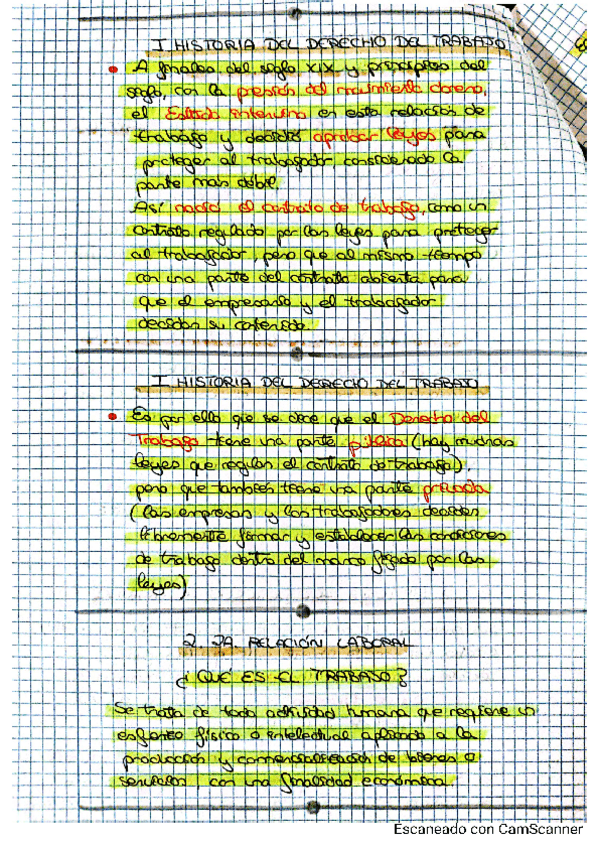 I HISTORIA DEL DERECHO DEL TRABAJO
• A finales del siglo XIX y principios del
siglo, con la presión del movimiento obrero,
el Estado intervino en esta relación de
trabajo y decidió aprobar leyes para
proteger al trabajador, considerado la
parte más débil.
Así nació el contrato de trabajo, como un
contrato regulado por las leyes para proteger
al trabajador, pero que al mismo tiempo
con una parte del contrato abierta para
que el empresario y el trabajador
decidan su contenido.
I HISTORIA DEL DERECHO DEL TRABAJO
• Es por ello que se dice que el Derecho del
Trabajo tiene una parte pública (hay muchas
leyes que regulan el contrato de trabajo),
pero que también tiene una parte privada
(las empresas y los trabajadores deciden
libremente firmar y establecer las condiciones
de trabajo dentro del marco fijado por las
leyes)
2. LA RELACIÓN LABORAL
¿QUÉ ES EL TRABAJO?
Se trata de toda actividad humana que requiere un
esfuerzo físico o intelectual aplicado a la
producción y comercialización de bienes o
servicios, con una finalidad económica.
Escaneado con CamScanner